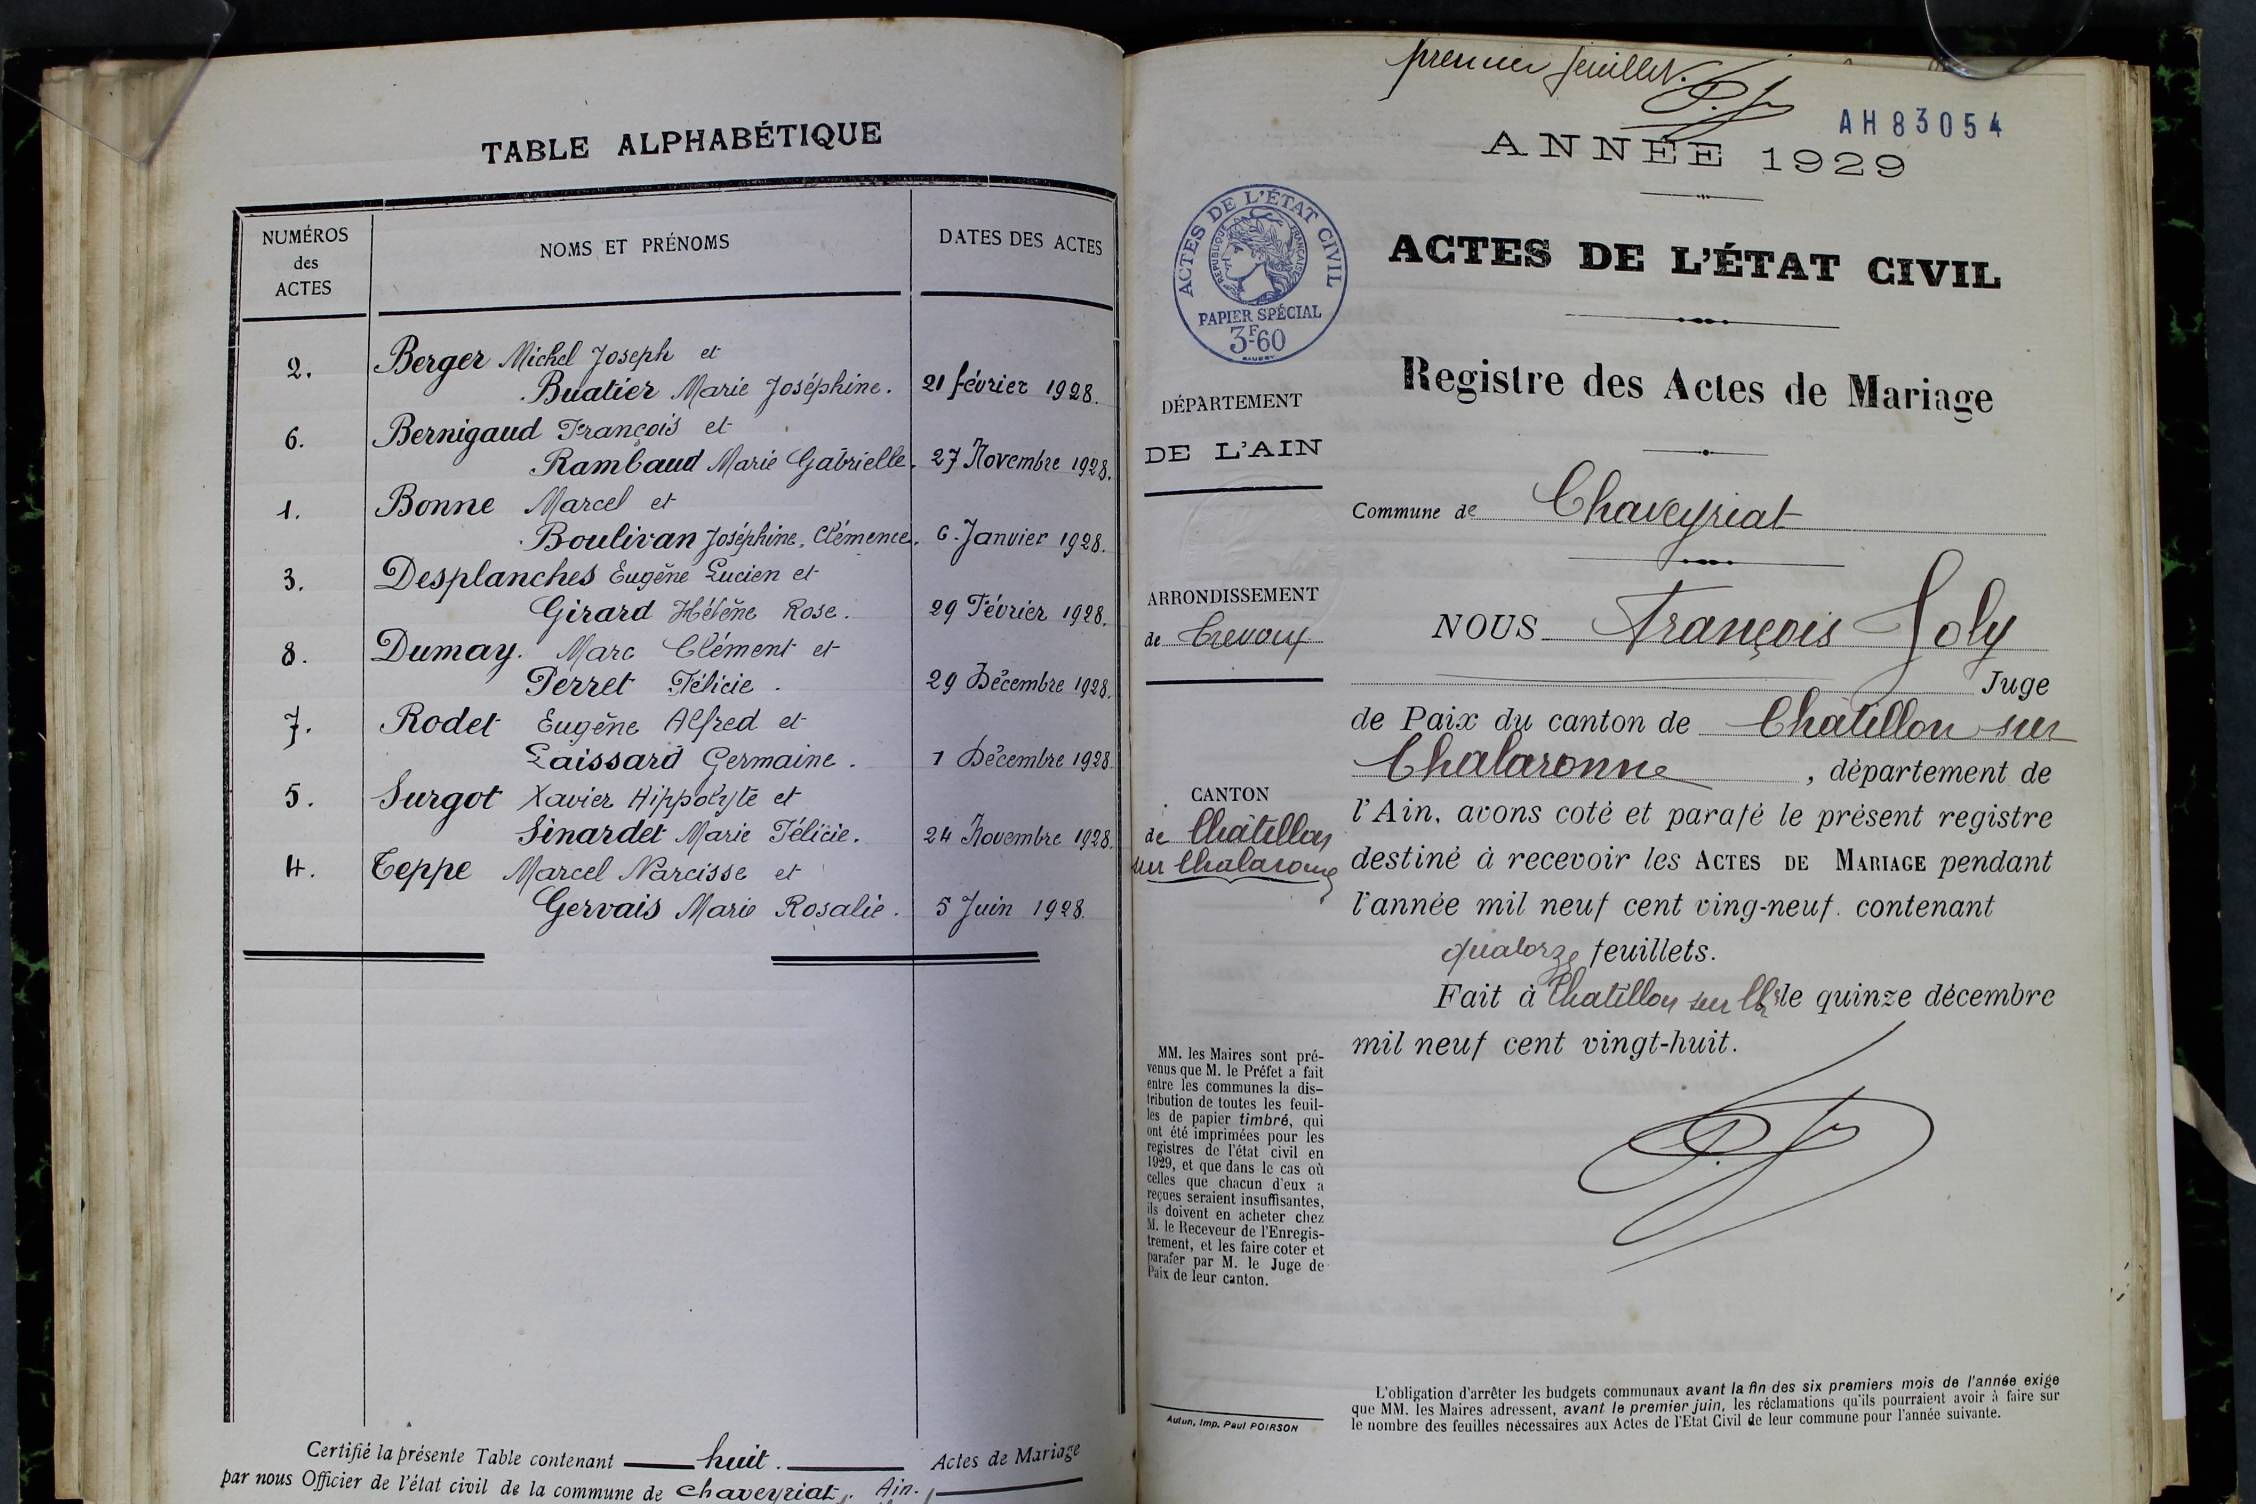 TABLE ALPHABÉTIQUE
NUMÉROS
des
ACTES
NOMS ET PRÉNOMS
DATES DES ACTES
2. Berger Michel Joseph et
Buatier Marie Joséphine. 21 février 1928.
6. Bernigaud François et
Rambaud Marie Gabrielle. 27 Novembre 1928.
1. Bonne Marcel et
Boulivan Joséphine, Clémence. 6. Janvier 1928.
3. Desplanches Eugène Lucien et
Girard Hélène Rose. 29 Février 1928.
8. Dumay. Marc Clément et
Perret Félicie. 29 Décembre 1928.
7. Rodet Eugène Alfred et
Laissard Germaine. 1 Décembre 1928
5. Surgot Xavier Hippolyte et
Sinardet Marie Félicie. 24 Novembre 1928.
4. Teppe Marcel Narcisse et
Gervais Marie Rosalie. 5 Juin 1928.
Certifié la présente Table contenant huit. Actes de Mariage
par nous Officier de l'état civil de la commune de Chaveyriat. Ain.
premier feuillet.
AH83054
ANNÉE 1929
ACTES DE L'ÉTAT CIVIL
RÉPUBLIQUE FRANÇAISE
PAPIER SPÉCIAL
3F60
ACTES DE L'ÉTAT CIVIL
Registre des Actes de Mariage
DÉPARTEMENT
DE L'AIN
ARRONDISSEMENT
de Trevoux
CANTON
de Châtillon
sur Chalaronne
MM. les Maires sont pré-
venus que M. le Préfet a fait
entre les communes la dis-
tribution de toutes les feuil-
les de papier timbré, qui
ont été imprimées pour les
registres de l'état civil en
1929, et que dans le cas où
celles que chacun d'eux a
reçues seraient insuffisantes,
ils doivent en acheter chez
M. le Receveur de l'Enregis-
trement, et les faire coter et
parafer par M. le Juge de
Paix de leur canton.
Autun, Imp. Paul POIRSON
Commune de Chaveyriat
NOUS François Joly
Juge
de Paix du canton de Châtillon sur
Chalaronne, département de
l'Ain, avons coté et parafé le présent registre
destiné à recevoir les ACTES DE MARIAGE pendant
l'année mil neuf cent ving-neuf. contenant
quatorze feuillets.
Fait à Chatillon sur Ch le quinze décembre
mil neuf cent vingt-huit.
L'obligation d'arrêter les budgets communaux avant la fin des six premiers mois de l'année exige
que MM. les Maires adressent, avant le premier juin, les réclamations qu'ils pourraient avoir à faire sur
le nombre des feuilles nécessaires aux Actes de l'Etat Civil de leur commune pour l'année suivante.